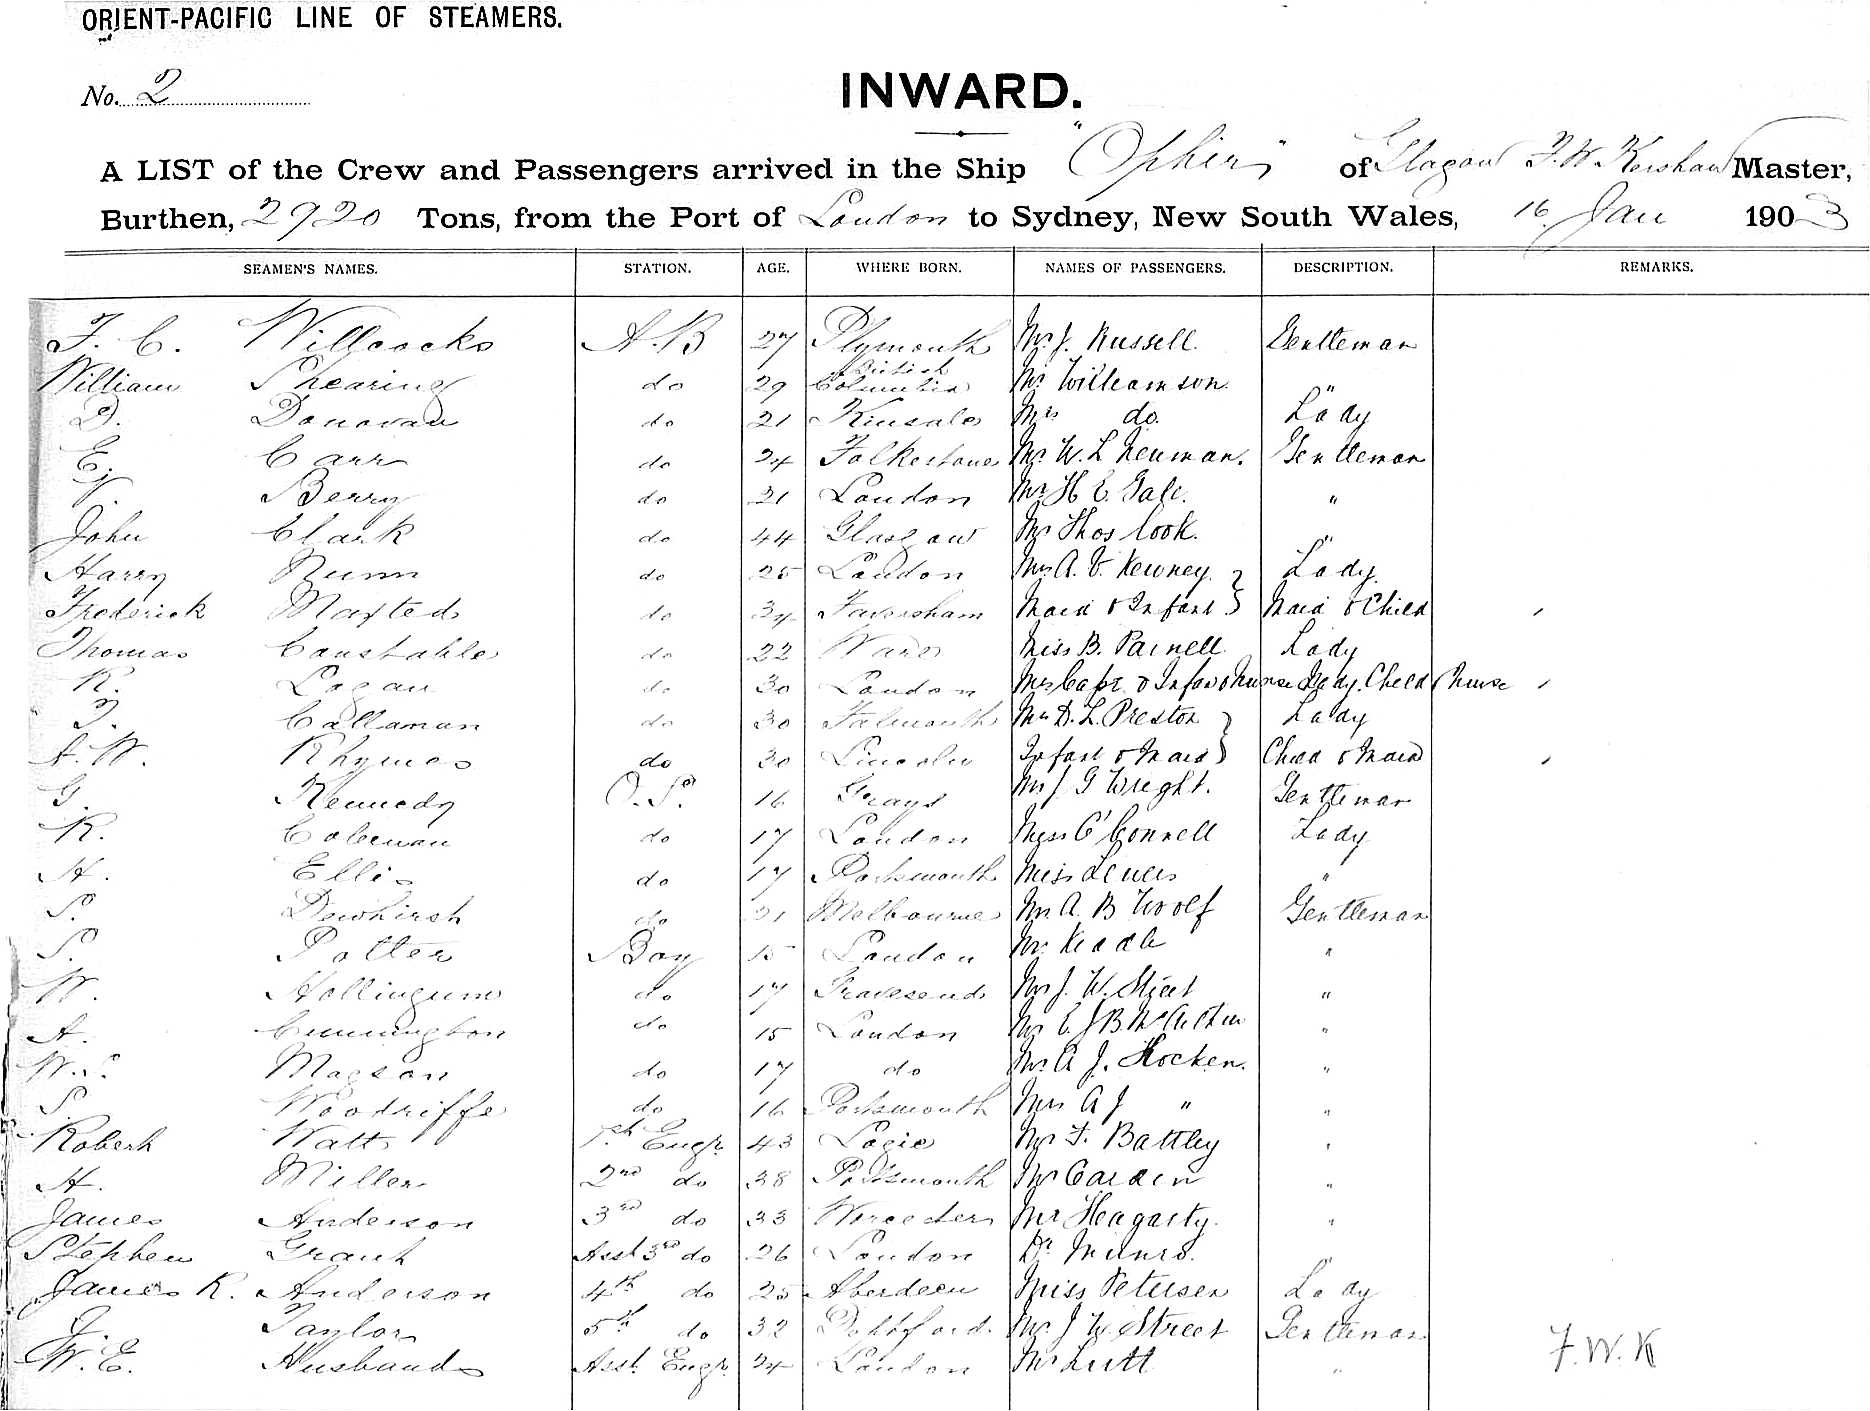 ORIENT-PACIFIC LINE OF STEAMERS.
No. 2
INWARD.
A LIST of the Crew and Passengers arrived in the Ship "Ophir" of Glasgow F. W. Kershaw Master,
Burthen, 2920 Tons, from the Port of London to Sydney, New South Wales, 16 Jan 1903
SEAMEN'S NAMES. STATION. AGE. WHERE BORN. NAMES OF PASSENGERS. DESCRIPTION. REMARKS.
F. C. Willcocks A.B 27 Plymouth Mr J. Russell. Gentleman
William Shearing do 29 British Columbia Mr Williamson "
D. Donovan do 21 Kinsale Mrs do. Lady
E. Carr do 24 Folkestone Mr W. L Neuman. Gentleman
J. Berry do 21 London Mr H E. Gale. "
John Clark do 44 Glasgow Mr Thos Cook. "
Harry Nunn do 25 London Mrs A. V. Kewney Lady
Frederick Maxted do 34 Faversham Maid & Infant Maid & Child
Thomas Constable do 22 Ware Miss B. Parnell Lady
R. Logan do 30 London Mrs Cape & Infant & Nurse Lady. Child & Nurse
J. Callaman do 30 Falmouth Mrs D. L. Preston Lady
A. W. Rhymes do 30 Lincoln Infant & Maid Child & Maid
G. Kennedy O.S. 16 Grays Mr J G Wright. Gentleman
R. Coleman do 17 London Miss O'Connell Lady
H. Ellis do 17 Portsmouth Miss Levers "
S. Dewhirst do 21 Melbourne Mr A. B Woolf Gentleman
S. Potter Boy 15 London Mr "
W. Hollingum do 17 Gravesend Mr J. W. Street "
A. Cunnington do 15 London Mr E J B. "
W. S. Magson do 17 do Mr A J. Hocken. "
S. Woodriffe do 16 Portsmouth Mrs A J " "
Robert Watt 1st Engr 43 Logie Mr F. Battley "
H. Miller 2nd do 38 Portsmouth Mr Carden "
James Anderson 3rd do 33 Worcester Mr Heagarty. "
Stephen Grant Asst 3rd do 26 London Dr Munro. "
James R. Anderson 4th do 25 Aberdeen Miss Petersen Lady
J. Taylor 5th do 32 Deptford. Mr J W. Street Gentleman
W. E. Husbands Asst. Engr 24 London Mr Lutt "
F. W. K